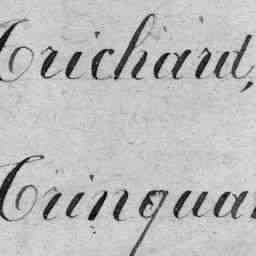 Trichard,
Trinquar